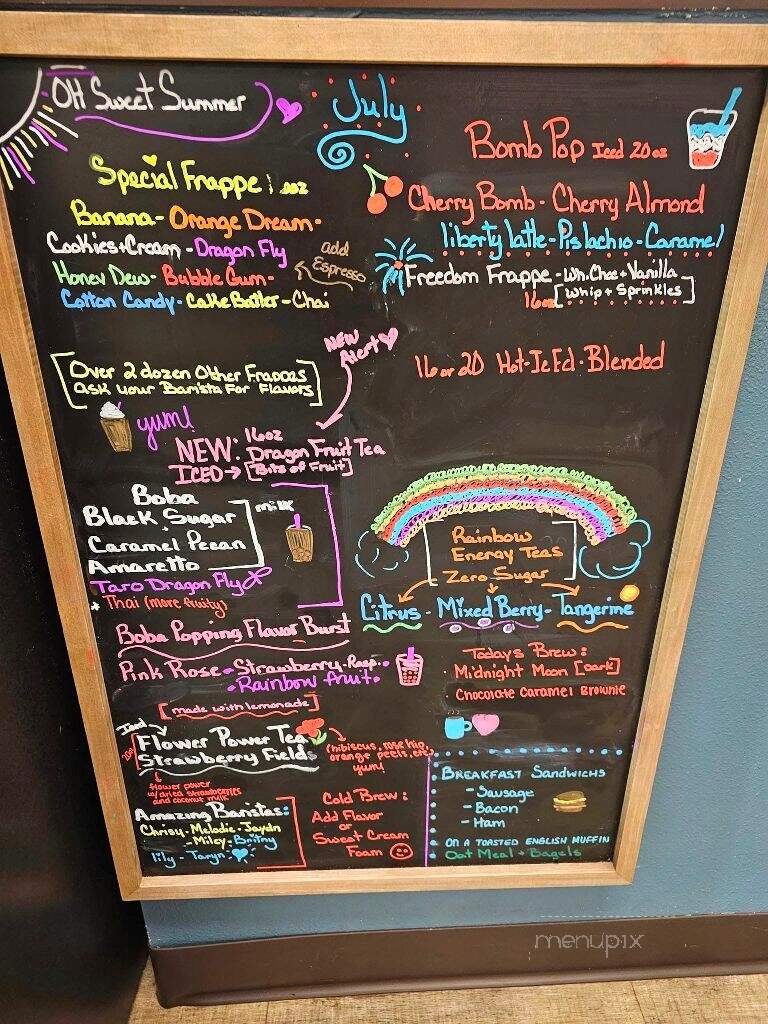 OH Sweet Summer
July
Special Frappe
Banana - Orange Dream -
Cookies + Cream - Dragon Fly
Honey Dew - Bubble Gum -
Cotton Candy - Cake Batter - Chai
add
Espresso
Over 2 dozen Other Frappes
ask your Barista For Flavors
yum!
NEW
Alert
NEW: 16oz
Dragon Fruit Tea
ICED → [Bits of Fruit]
Boba
Black Sugar
Caramel Pecan
Amaretto
milk
Taro Dragon Fly
+ Thai (more fruity)
Boba Popping Flavor Burst
Pink Rose - Strawberry - Rasp..
• Rainbow fruit •
[made with lemonade]
Iced
Flower Power Tea
Strawberry Fields
(hibiscus, rose hip,
orange peels, etc)
yum!
flower power
w/dried strawberries
and coconut milk
Amazing Baristas:
Chrisy - Melodie - Jaydn
- Miley - Britny
lily - Taryn
Cold Brew:
Add Flavor
or
Sweet Cream
Foam
Bomb Pop Iced 20oz
Cherry Bomb - Cherry Almond
liberty latte - Pistachio - Caramel
Freedom Frappe - Wh. Choc + Vanilla
16oz [Whip + Sprinkles]
16 or 20 Hot - IcEd - Blended
Rainbow
Energy Teas
Zero Sugar
Citrus - Mixed Berry - Tangerine
Todays Brew:
Midnight Moon [Dark]
Chocolate Caramel Brownie
BREAKFAST SANDWICHS
- Sausage
- Bacon
- Ham
ON A TOASTED ENGLISH MUFFIN
Oat Meal + Bagels
menupix